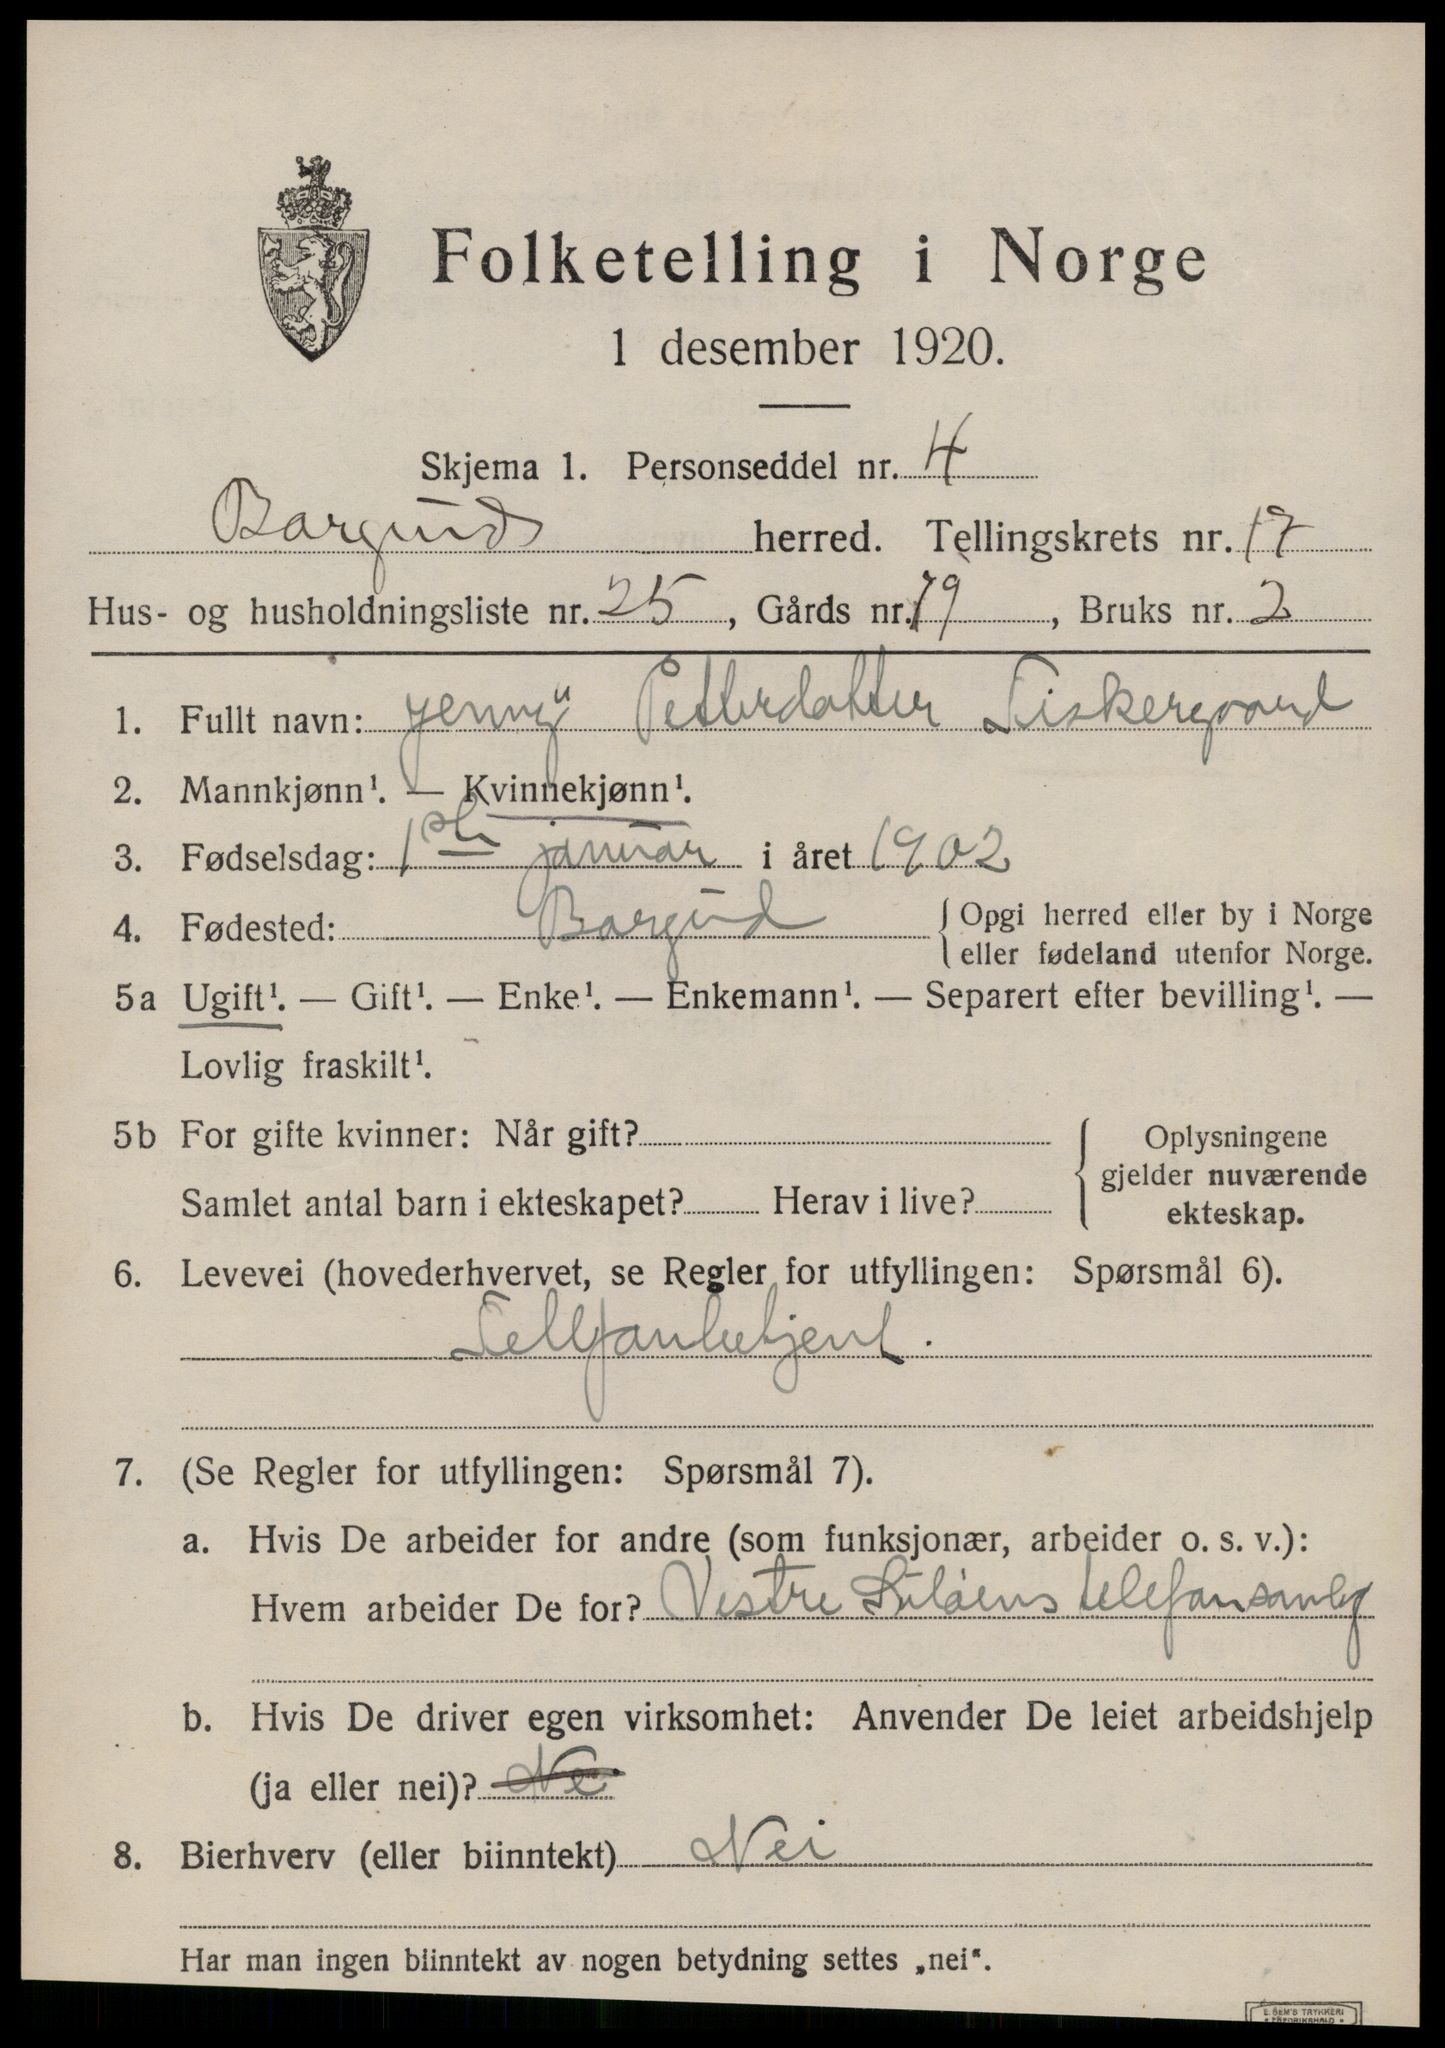 Folketelling i Norge
1 desember 1920.
Skjema 1. Personseddel nr. 4
Borgund herred. Tellingskrets nr. 17
Hus- og husholdningsliste nr. 25, Gårds nr. 79, Bruks nr. 2
1. Fullt navn: Jenny Petterdatter Fiskergaard
2. Mannkjønn¹. — Kvinnekjønn¹.
3. Fødselsdag: 1ste januar i året 1902
4. Fødested: Borgund { Opgi herred eller by i Norge
eller fødeland utenfor Norge.
5a Ugift¹. — Gift¹. — Enke¹. — Enkemann¹. — Separert efter bevilling¹. —
Lovlig fraskilt¹.
5b For gifte kvinner: Når gift?
Samlet antal barn i ekteskapet? Herav i live?
Oplysningene
gjelder nuværende
ekteskap.
6. Levevei (hovederhvervet, se Regler for utfyllingen: Spørsmål 6).
Tellfonbetjent.
7. (Se Regler for utfyllingen: Spørsmål 7).
a. Hvis De arbeider for andre (som funksjonær, arbeider o. s. v.):
Hvem arbeider De for? Vestre Suløens telefonsamlg
b. Hvis De driver egen virksomhet: Anvender De leiet arbeidshjelp
(ja eller nei)? Nei
8. Bierhverv (eller biinntekt) Nei
Har man ingen biinntekt av nogen betydning settes „nei“.
E. SEM'S TRYKKERI
FREDRIKSHALD